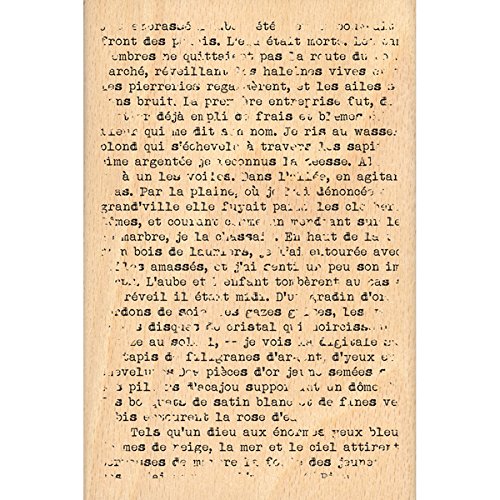 été
front des L'eau était morte.
ombres ne quittaient pas la route du
arché, réveillant les haleines vives
les pierreries regardèrent, et les ailes
ns bruit. La première entreprise fut,
déjà empli de frais et blêmes
fleur qui me dit son nom. Je ris au wasser
blond qui s'échevela à travers les sapi
cime argentée je reconnus la déesse. Al
à un les voiles. Dans l'allée, en agitan
as. Par la plaine, où je l'ai dénoncée
grand'ville elle fuyait parmi les clochers
mes, et courant comme un mendiant sur le
marbre, je la chassai. En haut de la
n bois de lauriers, je l'ai entourée avec
amassés, et j'ai senti un peu son im
L'aube et l'enfant tombèrent au bas
réveil il était midi. D'un gradin d'or
rdons de soie les gazes grises, les
disques de cristal qui noirciss
au soleil, -- je vois la digitale
tapis de filigranes d'argent, d'yeux e
hevelures Des pièces d'or jaune semées
piliers d'acajou supportant un dôme
bouquets de satin blanc et de fines ve
bis entourent la rose d'e
Tels qu'un dieu aux énormes yeux bleu
mes de neige, la mer et le ciel attirent
de marbre la foule des jeunes